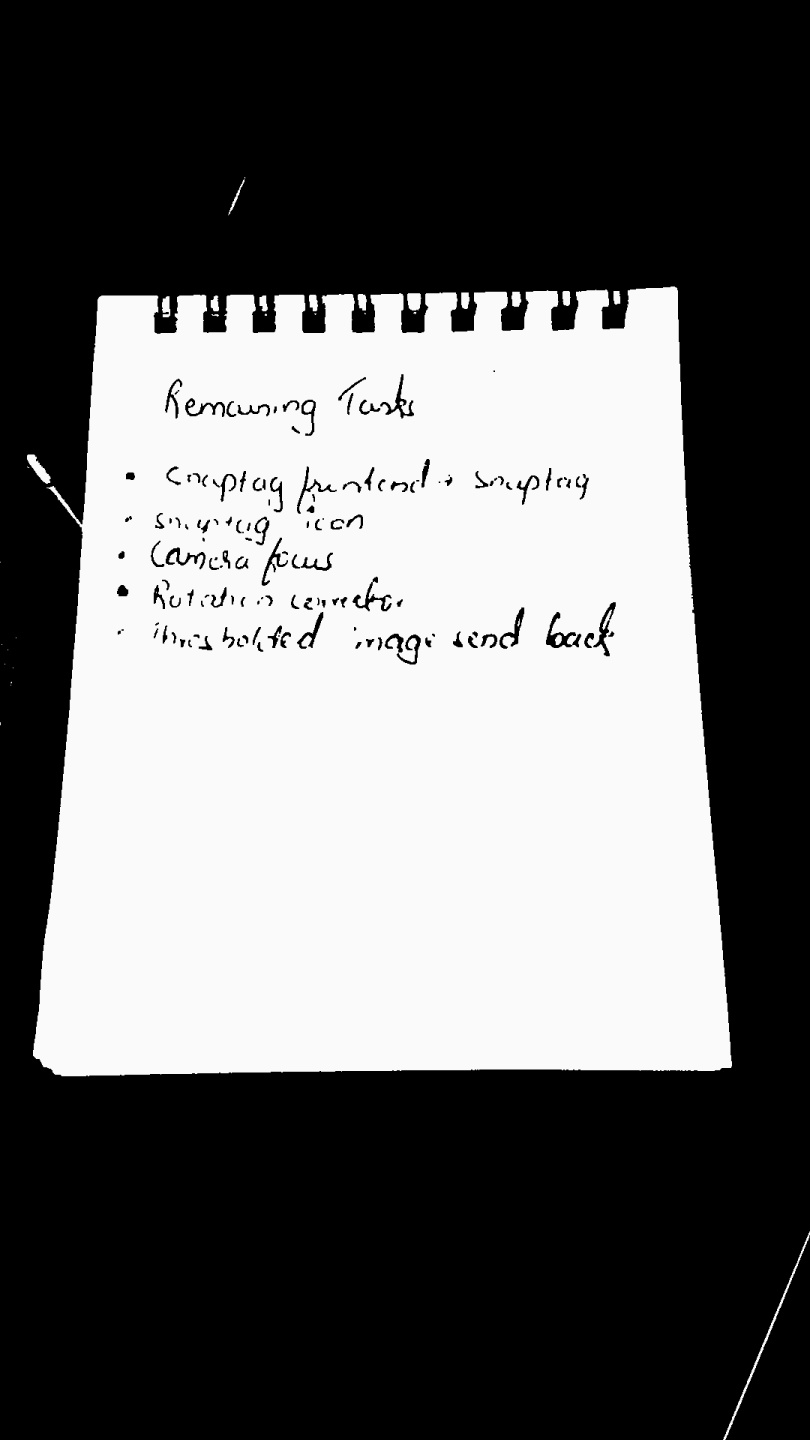 Remaining Tasks
• snaptag frontend → snaptag
• snaptag icon
• Camera focus
• Rotation correction
• thresholded image send back